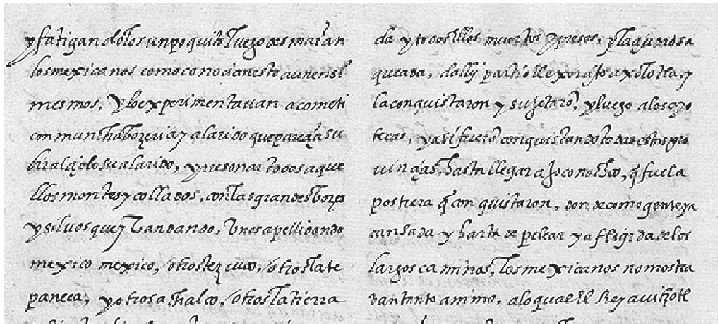 y fatigandolos un poquito luego desmaian
los mexicanos como conocian esto auner si
mesmos, y lo experimentauan acometi
con mucha bozeria y alarido que parecia su
bir al cielo su alarido, y resonar todos aque
llos montes y collados, con las grandes bozes
y siluos que yuan dando, Unos apellidando
mexico mexico, otros tezcuco, otros la te
paneca, y otros a chalco, otros la tierra
da y todos ellos muertos y presos, y la quadra
queada, de alli partio el exercito a xolotla, y
la conquistaron y sujetaro, y luego a los ayo
tecas, y asi fuero conquistando todas estas pro
uincias, hasta llegar a Xoconochco, q fue la
postrera q conquistaron, donde como gente ya
cansada y harta de pelear y affligida de los
largos caminos, los mexicanos no mostra
uan tanto animo, a lo qual el Rey auitzotl